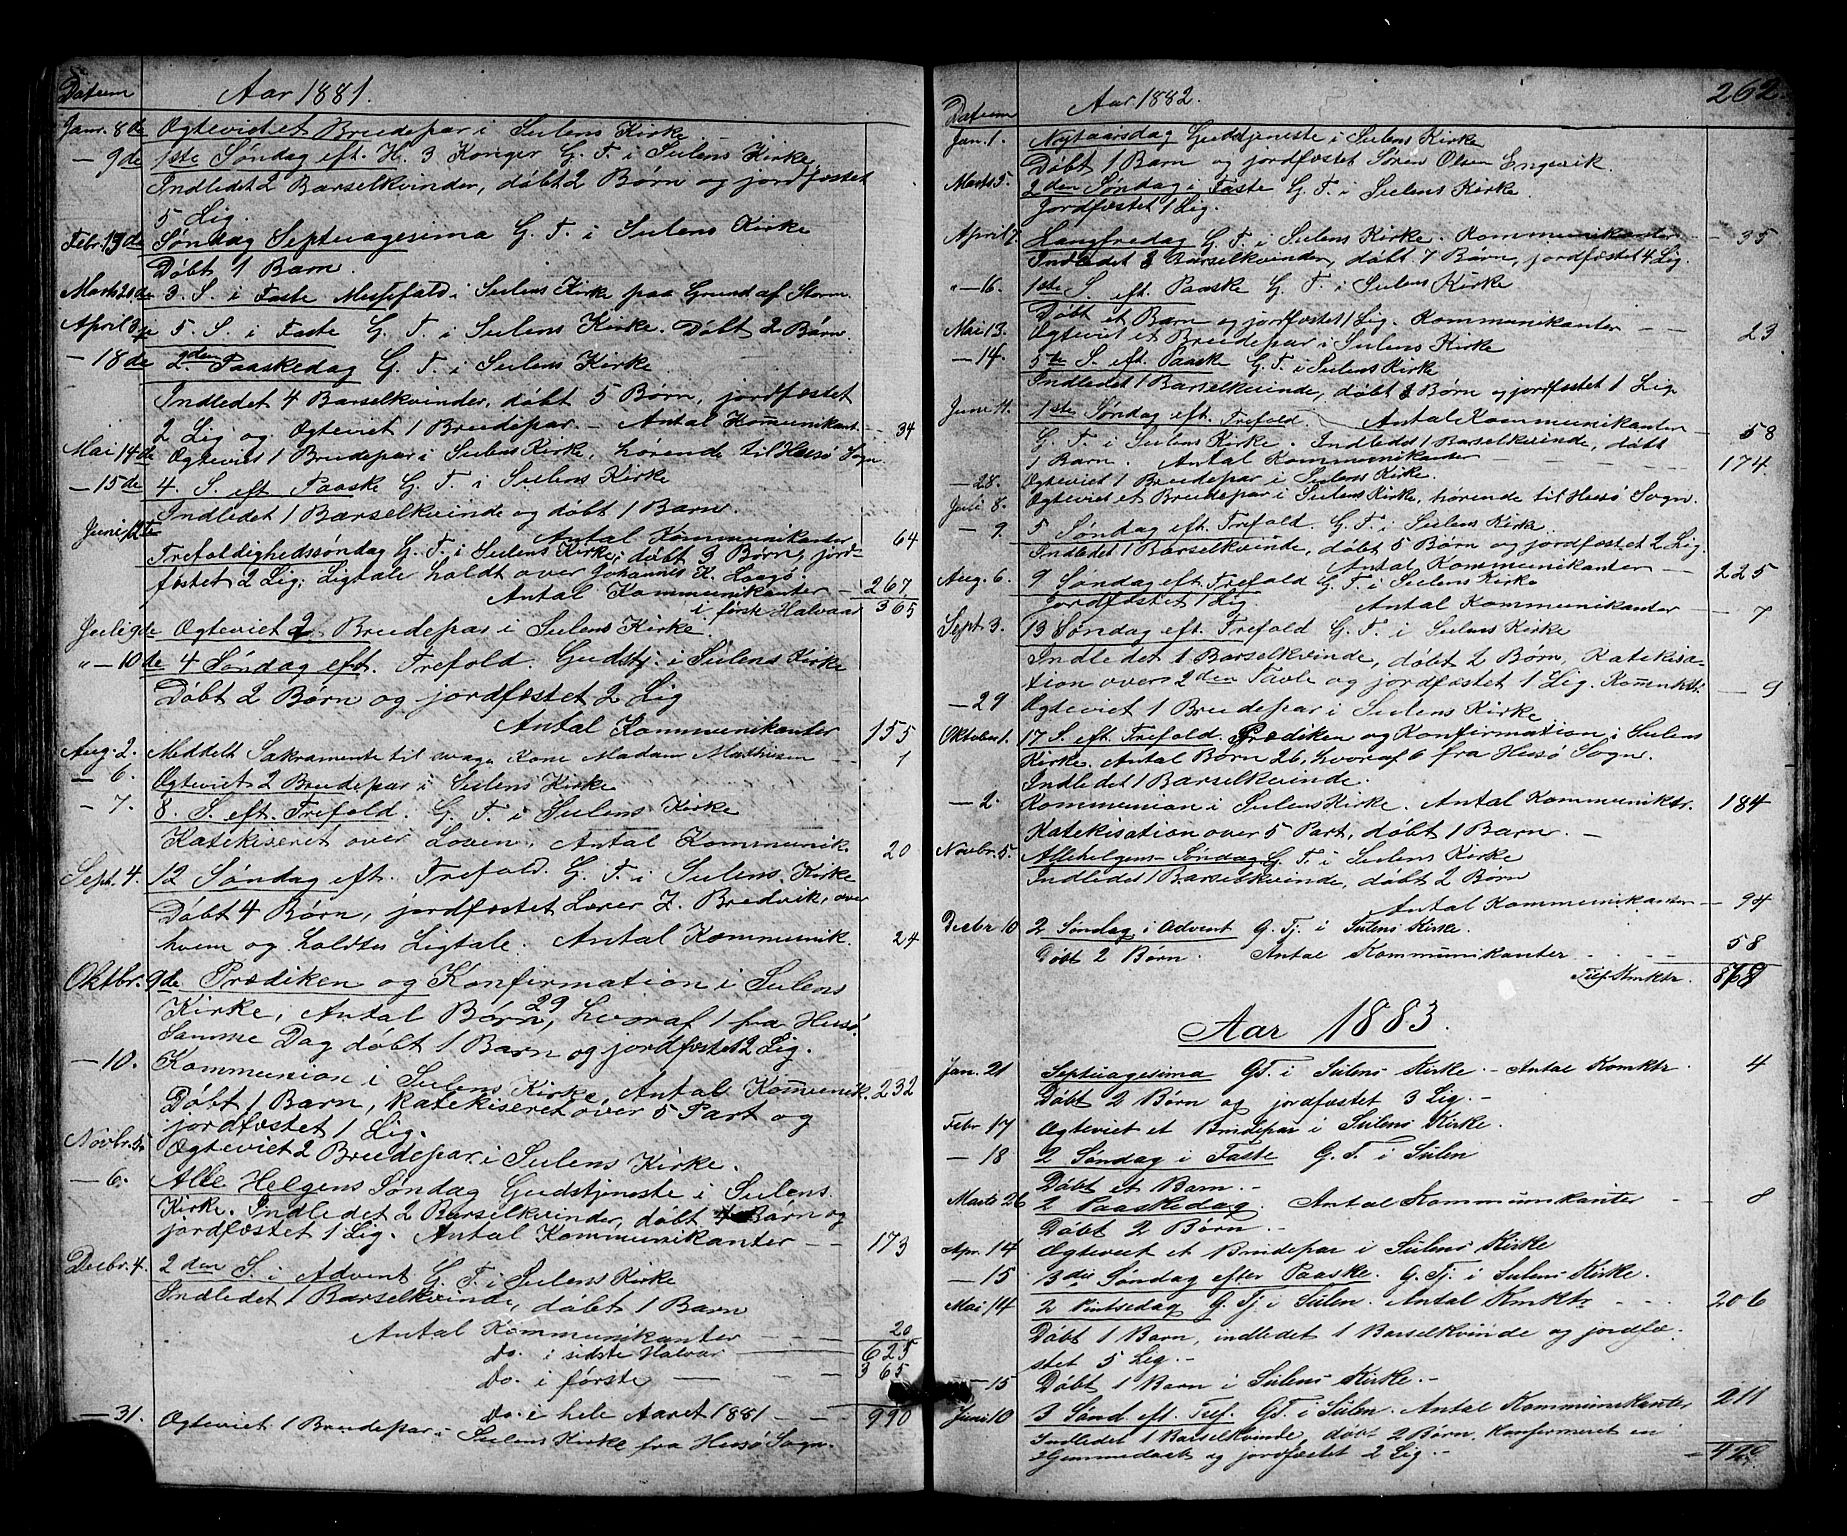 Datum Aar 1881.
Janr. 8de Ægteviet et Brudepar i Sulens Kirke
— 9de 1ste Søndag eft. H. 3 Konger G. T. i Sulens Kirke
Indledet 2 Barselkvinder, døbt 2 Børn og jordfæstet
5 Lig.
Febr. 13de Søndag Septuagesima G. T. i Sulens Kirke
Døbt 1 Barn.
Marts 20de 3. S. i Faste Messefald i Sulens Kirke paa Grund af Storm
April 3de 5. S. i Faste G. T. i Sulens Kirke. Døbt 2 Børn
— 18de 2den Paaskedag G. T. i Sulens Kirke.
Indledet 4 Barselkvinder, døbt 5 Børn, jordfæstet
2 Lig og Ægteviet 1 Brudepar. — Antal Kommunikant. — 34
Mai 14de Ægteviet 1 Brudepar i Sulens Kirke, hørende til Husø Sogn.
— 15de 4. S. eft Paaske G. T. i Sulens Kirke
Indledet 1 Barselkvinde og døbt 1 Barn.
Antal Kommunikanter 64
Juni 12te Trefoldighedssøndag G. T. i Sulens Kirke, døbt 3 Børn, jord-
fæstet 2 Lig; Ligtale holdt over Johannes K. Haagø.
Antal Kommunikanter — 267
i første Halvaar 365
Juli 9de Ægteviet 2 Brudepar i Sulens Kirke.
" — 10de 4 Søndag eft. Trefold. Gudstj. i Sulens Kirke
Døbt 2 Børn og jordfæstet 2 Lig
Antal Kommunikanter 155
Aug. 2. Meddelt Sakramente til svage Kone Madam Mathisen — 1
— 6. Ægteviet 2 Brudepar i Sulens Kirke
— 7. 8. S. eft. Trefold. G. T. i Sulens Kirke
Katekiseret over Loven. Antal Kommunik. 20
Sept. 4. 12 Søndag eft. Trefold. G. T. i Sulens Kirke
Døbt 4 Børn, jordfæstet Lærer Z. Bredvik, over
hvem og holdtes Ligtale. Antal Kommunik. 24
Oktbr. 9de Prædiken og Konfirmation i Sulens
Kirke, Antal Børn 29, hvoraf 1 fra Husø.
Samme Dag døbt 1 Barn og jordfæstet 2 Lig.
— 10. Kommunion i Sulens Kirke, Antal Kommunik. 232
Døbt 1 Barn, katekiseret over 5 Part og
jordfæstet 1 Lig.
Novbr. 5. Ægteviet 2 Brudepar i Sulens Kirke.
— 6. Alle Helgens Søndag Gudstjeneste i Sulens
Kirke. Indledet 2 Barselkvinder, døbt Børn og
jordfæstet 1 Lig. Antal Kommunikanter — 173
Decbr. 4. 2den S. i Advent G. T. i Sulens Kirke
Indledet 1 Barselkvinde, døbt 1 Barn
Antal Kommunikanter — 20
Do. i sidste Halvar — 625
Do. i første — 365
Do. i hele Aaret 1881 — 990
— 31. Ægteviet 1 Brudepar i Sulens Kirke fra Husø Sogn.
262.
Datum Aar 1882.
Jan. 1. Nytaarsdag Gudstjeneste i Sulens Kirke
Døbt 1 Barn og jordfæstet Søren Olsen Engevik.
Marts 5. 2den Søndag i Faste G. T. i Sulens Kirke.
Jordfæstet 1 Lig.
April 7. Langfredag G. T. i Sulens Kirke. Kommunikanter — 35
Indledet Barselkvinder, døbt 7 Børn, jordfæstet 4 Lig.
" — 16. 1ste S. eft. Paaske G. T. i Sulens Kirke
Døbt et Barn og jordfæstet 1 Lig. Kommunikanter — 23
Mai 13. Ægteviet et Brudepar i Sulens Kirke
— 14. 5te S. eft. Paask G. T. i Sulens Kirke
Indledet 1 Barselkvinde, døbt Børn og jordfæstet 1 Lig.
Antal Kommunikanter — 58
Juni 4. 1ste Søndag eft. Trefold.
G. T. i Sulens Kirke. Indledet 1 Barselkvinde, døbt
1 Barn. Antal Kommunikanter — 174
— 28. Ægteviet 1 Brudepar i Sulens Kirke.
Juli 8. Ægteviet et Brudepar i Sulens Kirke, hørende til Husø Sogn.
— 9. 5 Søndag eft. Trefold. G. T. i Sulens Kirke.
Indledet 1 Barselkvinde, døbt 5 Børn og jordfæstet 2 Lig.
Antal Kommunikanter — 225
Aug. 6. 9 Søndag eft. Trefold G. T. i Sulens Kirke
Jordfæstet 1 Lig. Antal Kommunikanter — 7
Sept. 3. 13 Søndag eft. Trefold G. T. i Sulens Kirke
Indledet 1 Barselkvinde, døbt 2 Børn, Katekisa-
tion over 2den Tavle og jordfæstet 1 Lig. — 9
— 29 Ægteviet 1 Brudepar i Sulens Kirke
Oktober 1. 17 S. eft. Trefold. Prædiken og Konfirmation i Sulens
Kirke. Antal Børn 26, hvoraf 6 fra Husø Sogn.
Indledet 1 Barselkvinde.
— 2. Kommunion i Sulens Kirke. Antal Kommuniktr. 184
Katekisation over 5 Part, døbt 1 Barn. —
Novbr. 5. Allehelgens-Søndag G. T. i Sulens Kirke
Indledet 1 Barselkvinde, døbt 2 Børn
Antal Kommunikanter — 94
Decbr 10 2 Søndag i Advent G. Tj. i Sulens Kirke.
Døbt 2 Børn. Antal Kommunikanter 58
Kmktr. 868
Aar 1883.
Jan. 21 Septuagesima GT. i Sulens Kirke — Antal Komktr. 4
Døbt 2 Børn og jordfæstet 3 Lig. —
Febr. 17 Ægteviet et Brudepar i Sulens Kirke.
— 18 2 Søndag i Faste G. T. i Sulen
Døbt et Barn. —
Marts 26 2 Paaskedag. Antal Kommunikanter — 8
Døbt 2 Børn. —
Apr. 14 Ægteviet et Brudepar i Sulens Kirke
— 15 3die Søndag efter Paaske. G. Tj. i Sulens Kirke.
Mai 14 2 Pintsedag G. Tj i Sulen. Antal Kmktr — 206
Døbt 1 Barn, indledet 1 Barselkvinde og jordfæ-
stet 5 Lig. —
— 15 Døbt 1 Barn i Sulens Kirke. —
Juni 10 3 Sønd eft. Tref. GT. i Sulen. Antal Kommunikanter 211
Indledet 1 Barselkvinde, døbt 2 Børn, Konfirmeret en
Hjemmedøbt og jordfæstet 2 Lig — 429